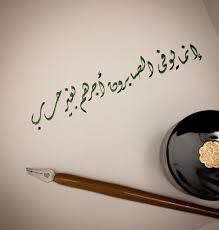 إنما يوفى الصابرون أجرهم بغير حساب